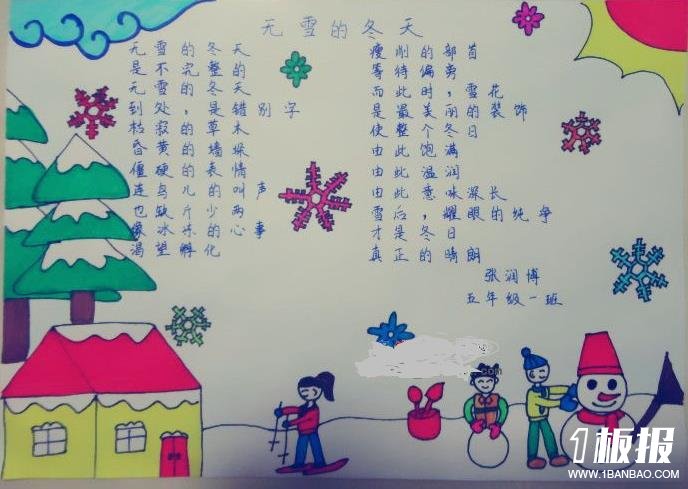 无雪的冬天
无雪的冬天
是不完整的
无雪的冬天
到处，是错别字
枯寂的草木
昏黄的墙垛
僵硬的表情
连鸟儿的叫声
也缺斤少两
像冰冻的心事
渴望孵化
瘦削的部首
等待偏旁
而此时，雪花
是最美丽的装饰
使整个冬日
由此饱满
由此温润
由此意味深长
雪后，耀眼的纯净
才是冬日
真正的晴朗
张润博
五年级一班
.com
1板报
WWW.1BANBAO.COM